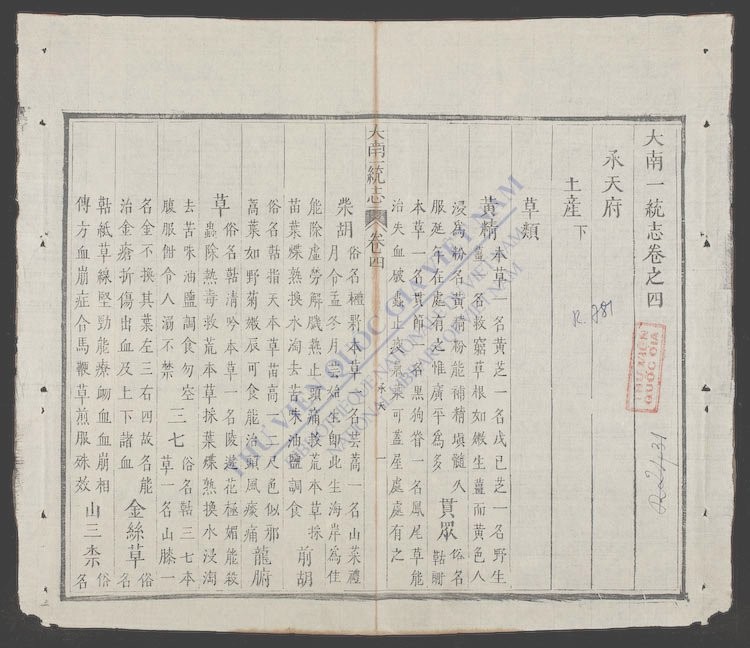 大南一統志卷之四
承天府
土產下
草類
黃精 本草一名黃芝一名戊巳芝一名野生
薑一名救窮草根如嫩生薑而黃色人
浸為粉名黃精粉能補精填髓久
服延年在處有之惟廣平為多
貫眾 俗名
本草一名貫節一名黑狗脊一名鳳尾草能
治失血破蠱止疼氣葉可蓋屋處處有之
大南一統志 卷四 承天 一
柴胡 俗名野本草一名芸蒿一名山菜禮
月令孟冬月芸始生即此生海岸為佳
能除虛勞解飢熱止頭痛救荒本草採
苗葉煠熟換水淘去苦味油鹽調食
前胡
俗名指天本草苗高一二尺色似邪
蒿葉如野菊嫩辰可食能治頭風痰痛
龍膽
草 俗名清吟本草一名陵遊花極媚能殺
蟲除熱毒救荒本草採葉煠熟換水浸淘
去苦味油鹽調食勿空
腹服令人溺不禁
三七 俗名三七本
草一名山膝一
名金不換其葉左三右四故名能
治金瘡折傷出血及上下諸血
金絲草 俗
名
紙草線堅勁能療衂血血崩相
傳方血崩症合馬鞭草煎服殊效
山三柰 俗
名
R. 781
THƯ VIỆN
QUỐC GIA
THƯ VIỆN QUỐC GIA VIỆT NAM
BIBLIOTHÈQUE NATIONALE DU VIETNAM
NATIONAL LIBRARY OF VIETNAM